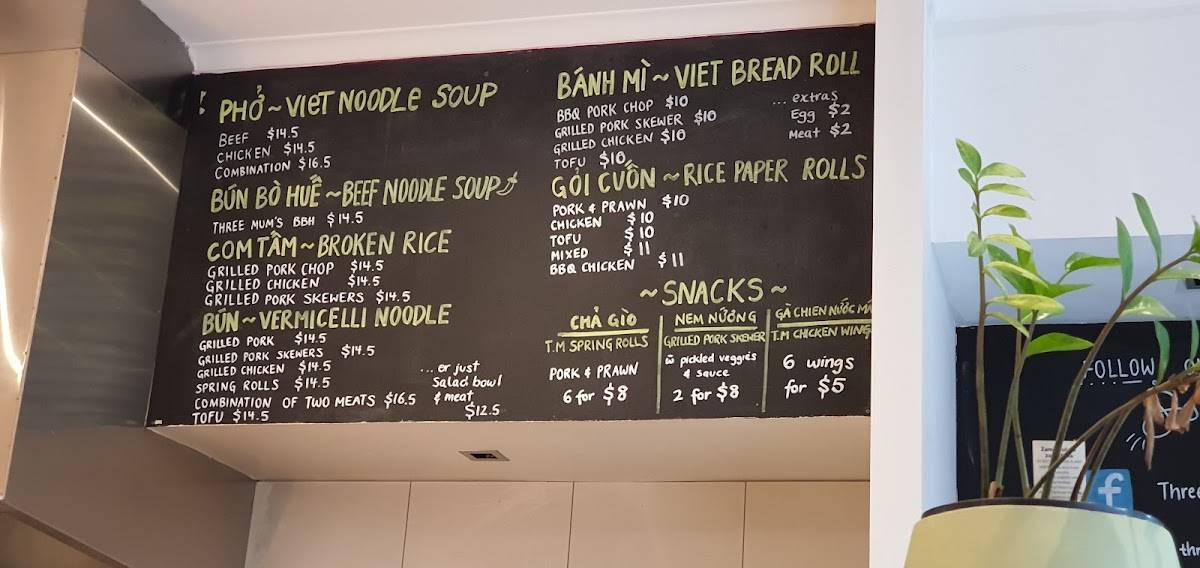 PHỞ ~ VIET NOODLE SOUP
BEEF $14.5
CHICKEN $14.5
COMBINATION $16.5
BÚN BÒ HUẾ ~ BEEF NOODLE SOUP
THREE MUM'S BBH $14.5
COM TẤM ~ BROKEN RICE
GRILLED PORK CHOP $14.5
GRILLED CHICKEN $14.5
GRILLED PORK SKEWERS $14.5
BÚN ~ VERMICELLI NOODLE
GRILLED PORK $14.5
GRILLED PORK SKEWERS $14.5
GRILLED CHICKEN $14.5
SPRING ROLLS $14.5
COMBINATION OF TWO MEATS $16.5
TOFU $14.5
... or just
Salad bowl
& meat
$12.5
BÁNH MÌ ~ VIET BREAD ROLL
BBQ PORK CHOP $10
GRILLED PORK SKEWER $10
GRILLED CHICKEN $10
TOFU $10
... extras
Egg $2
Meat $2
GỎI CUỐN ~ RICE PAPER ROLLS
PORK & PRAWN $10
CHICKEN $10
TOFU $10
MIXED $11
BBQ CHICKEN $11
~ SNACKS ~
CHẢ GIÒ
T.M SPRING ROLLS
PORK & PRAWN
6 for $8
NEM NƯỚNG
GRILLED PORK SKEWER
w pickled veggies
& sauce
2 for $8
GÀ CHIEN NƯỚC MẮ
T.M CHICKEN WING
6 wings
for $5
FOLLOW
f
Three
thr